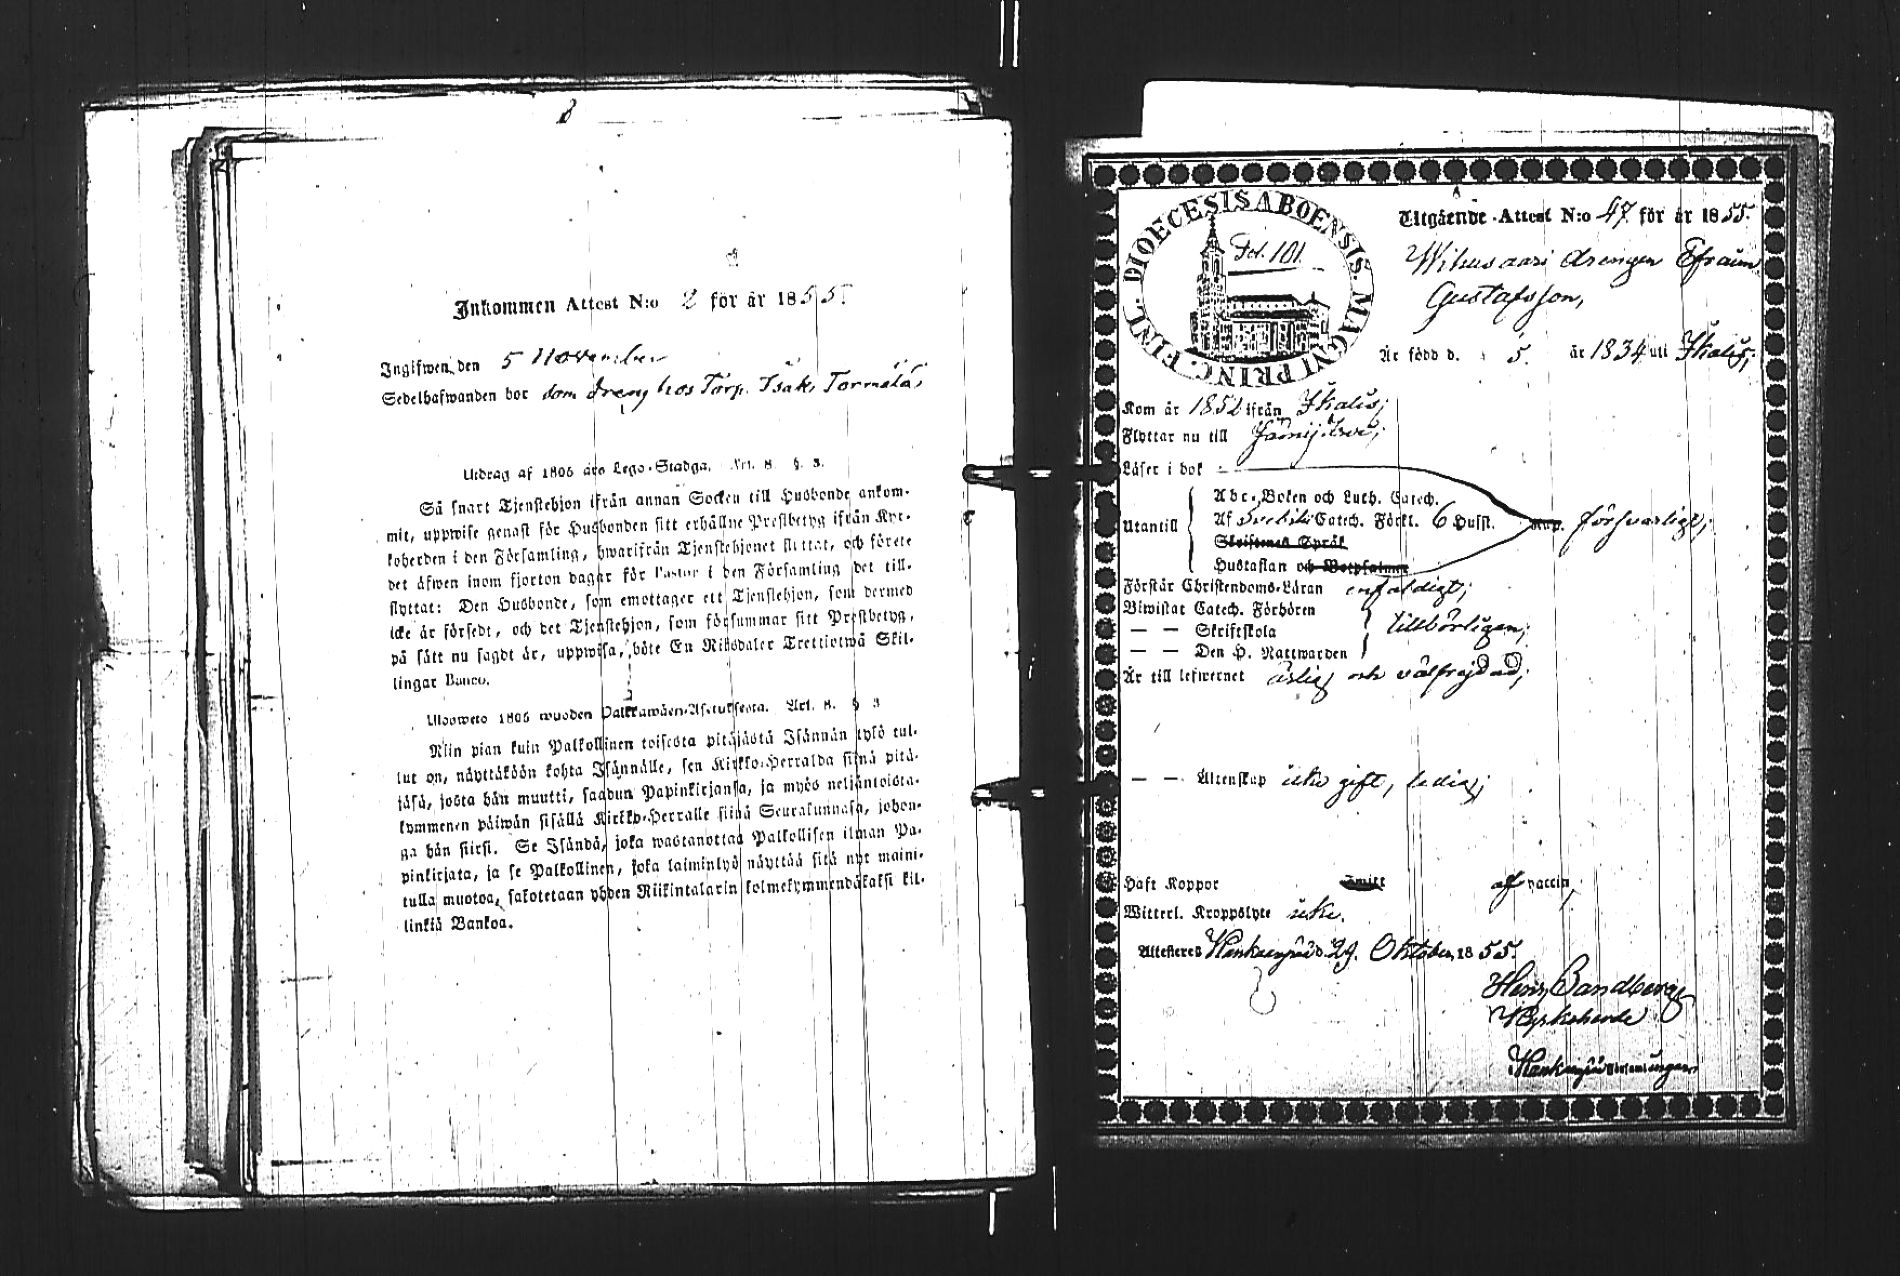 8
Inkommen Attest N:o 2 för år 1855.
Ingifwen den 5 November
Sedelhafwanden bor som dreng hos Torp. Isaks Tormälä,
Utdrag af 1805 års Lego-Stadga. Art. 8. §. 3.
Så snart Tjenstehjon ifrån annan Socken till Husbonde ankom-
mit, uppwise genast för Husbonden sitt erhållne Prestbetyg ifrån Kyr-
koherden i den Församling, hwarifrån Tjenstehjonet flyttat, och förete
det äfwen inom fjorton dagar för Pastor i den Församling det till-
flyttat: Den Husbonde, som emottager ett Tjenstehjon, som dermed
icke är försedt, och det Tjenstehjon, som försummar sitt Prestbetyg,
på sätt nu sagdt är, uppwisa, böte En Riksdaler Trettiotwå Skil-
lingar Banco.
Ulosweto 1805 wuoden Palkkawäen-Asetuksesta. Art. 8. § 3
Niin pian kuin Palkollinen toisesta pitäjästä Isännän tykö tul-
lut on, näyttäköön kohta Isännälle, sen Kirkko-Herralda siinä pitä-
jäsä, josta hän muutti, saadun Papinkirjansa, ja myös neljäntoista-
kymmenen päiwän sisällä Kirkko-Herralle siinä Seurakunnasa, johon-
ga hän siirsi. Se Isändä, joka wastanottaa Palkollisen ilman Pa-
pinkirjata, ja se Palkollinen, joka laiminlyö näyttää sitä nyt maini-
tulla muotoa, sakotetaan yhden Riikintalarin kolmekymmendäkaksi kil-
linkiä Bankoa.
FINL. DIOECESIS ABOENSIS. MAGNI PRINC.
Fol. 101.
Utgående Attest N:o 47 för år 1855.
drengen Efraim
Gustafsson,
Är född d. 5. år 1834 uti Ikalis;
Kom år 1852 ifrån Ikalis;
Flyttar nu till Jämijärvi;
Läser i bok
Utantill
Abc-Boken och Luth. Catech.
Af Svebilii Catech. Förkl. 6 Hufst. försvarligt;
Skriftenes Språk
Hustaflan och Botpsalmer
Förstår Christendoms-Läran enfaldigt;
Biwistat Catech. Förhören
— — Skriftskola tillbörligen;
— — Den H. Nattwarden
Är till lefwernet ärlig och välfrejdad;
— — Äktenskap icke gift, ledig;
Haft Koppor af vaccin,
Witterl. Kroppslyte icke.
Attesteras Kankaanpää d. 29. Oktober 1855.
Henr. Sandberg
Kyrkoherde
Kankaanpää Församlingen